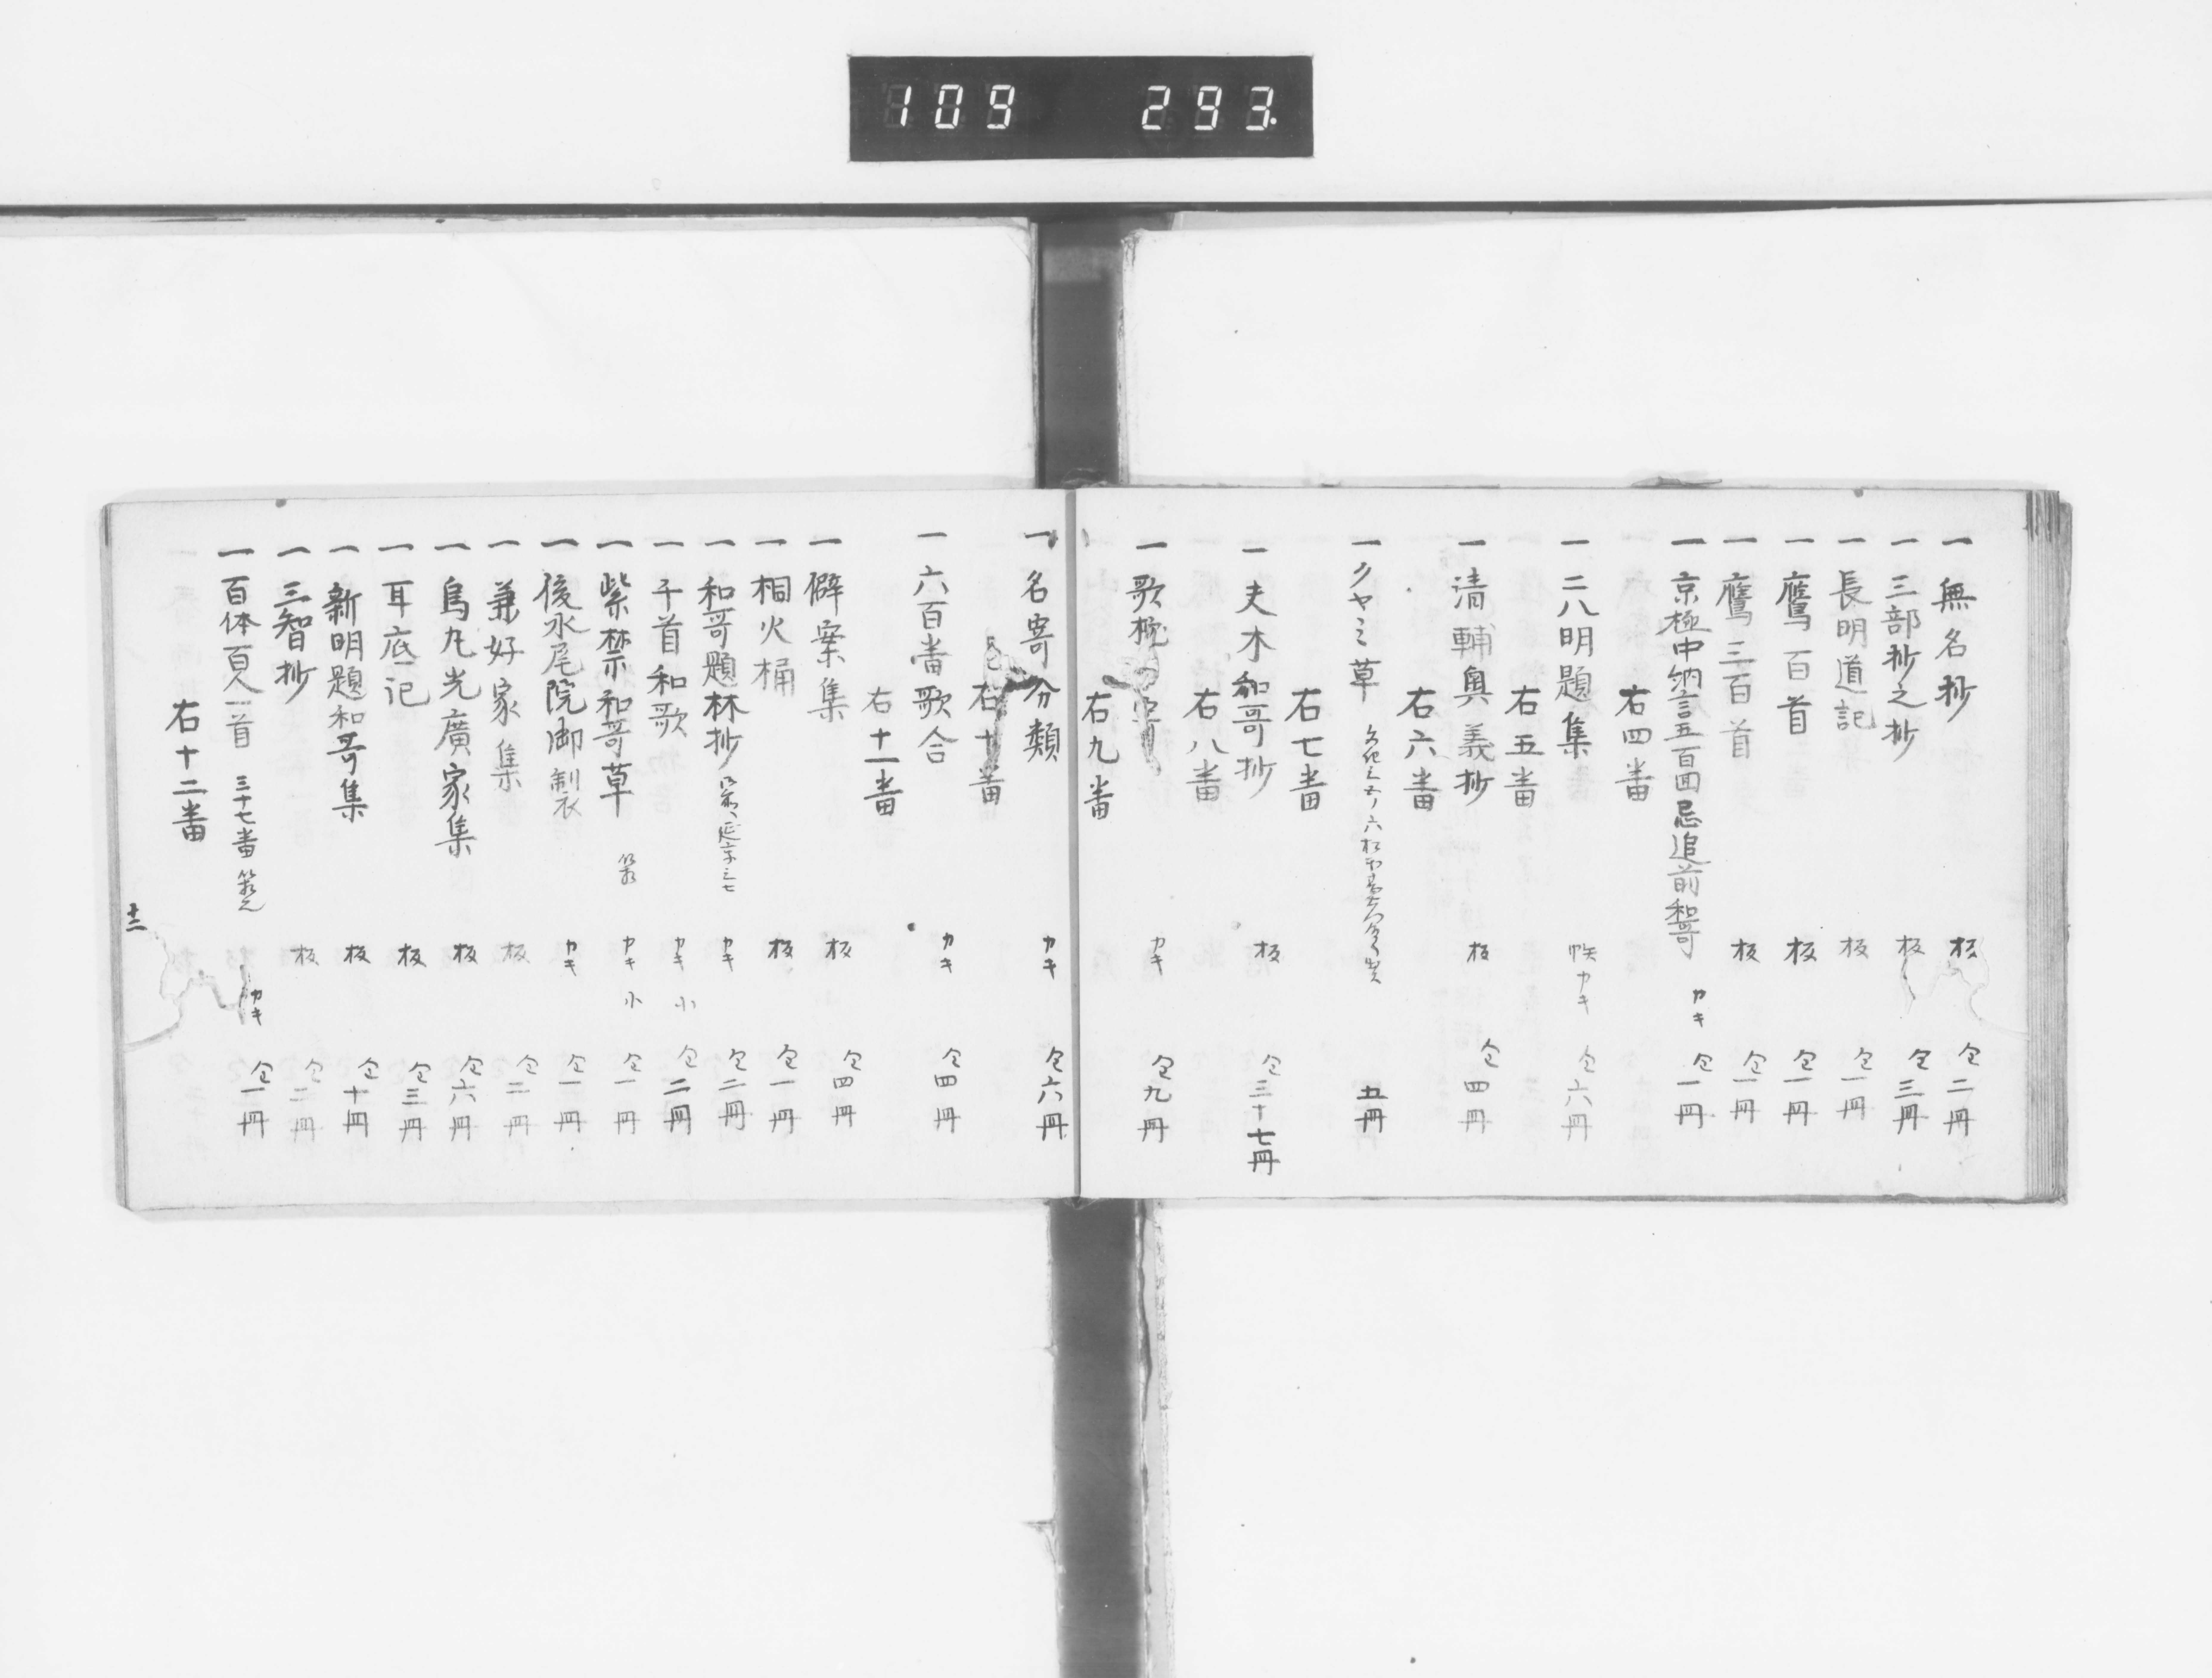 109 293
一 無名抄 板 仝二冊
一 三部抄之抄 板 仝三冊
一 長明道記 板 仝一冊
一 鷹百首 板 仝一冊
一 鷹三百首 板 仝一冊
一 京極中納言五百回忌追前和哥 カキ 仝一冊
右四番
一 二八明題集 帙カキ 仝六冊
右五番
一 清輔奥義抄 板 仝四冊
右六番
一 クヤミ草 五冊
右七番
一 夫木和哥抄 板 仝三十七冊
右八番
一 歌枕名寄 カキ 仝九冊
右九番
一 名寄分類 カキ 仝六冊
右十番
一 六百番歌合 カキ 仝四冊
右十一番
一 僻案集 板 仝四冊
一 桐火桶 板 仝一冊
一 和哥題林抄 カキ 仝二冊
一 千首和歌 カキ 小 仝二冊
一 紫禁和哥草 カキ 小 仝一冊
一 後水尾院御製 カキ 仝一冊
一 兼好家集 板 仝二冊
一 烏丸光廣家集 板 仝六冊
一 耳底記 板 仝三冊
一 新明題和哥集 板 仝十冊
一 三智抄 板 仝二冊
一 百体百人一首 三十七番 カキ 仝一冊
右十二番
十二